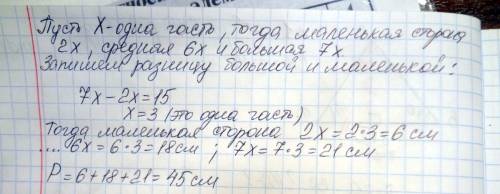 Пусть X-одна часть, тогда маленькая сторона
2x, средняя 6x и большая 7x
Запишем разницу большой и маленькой:
7x-2x=15
x=3 (это одна часть)
Тогда маленькая сторона 2x=2·3=6см
.... 6x=6·3=18см ; 7x=7·3=21см
P=6+18+21=45см